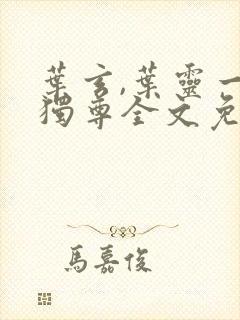 葉玄,葉靈一
獨尊全文免
馬嘉俊